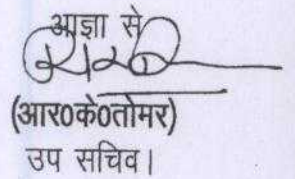 आज्ञा से
(आर0के0तोमर)
उप सचिव।